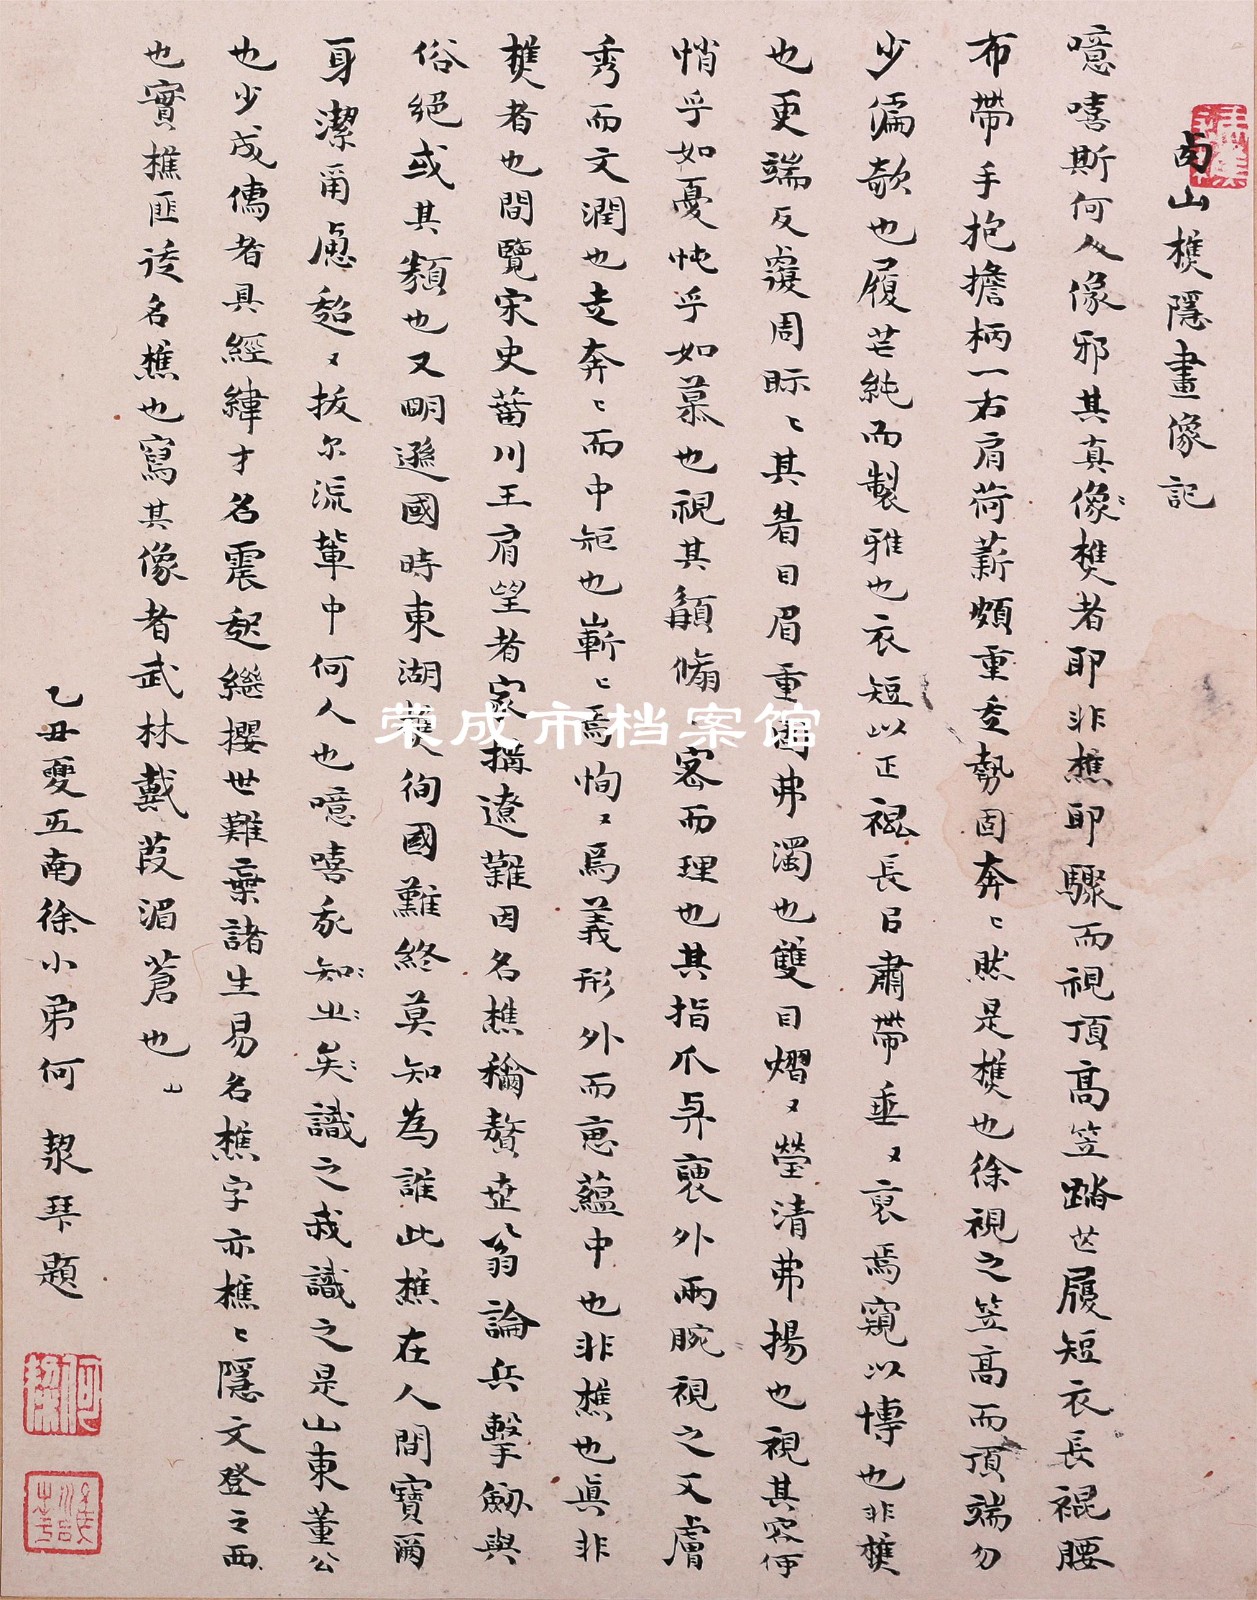 卤山樵隱畫像記
噫嘻斯何人像邪其真像樵者耶非樵耶驟而視頂高笠踏芒履短衣長裩腰
布帶手抱擔柄一右肩荷薪頗重歪勢固奔〻然是樵也徐視之笠高而頂端勿
少偏欹也履芒純而製雅也衣短以正裩長㠯肅帶垂〻衷焉窺以博也非樵
也更端反覆周眎〻其眉目眉重 弗濁也雙目熠〻瑩清弗揚也視其容何
悄乎如憂忳乎如慕也視其額 密而理也其指爪 衷外兩腕視之又膚
秀而文潤也走奔〻而中矩也嶄〻焉恂〻焉義形外而悳蘊中也非樵也真非
樵者也間覽宋史菑川王肩望者家 遼難因名樵稱贅世翁論兵擊劒與
俗絕或其類也又明遜國時東湖樵徇國難終莫知為誰此樵在人間寶爾
身潔甭慮超〻拔尔流輩中何人也噫嘻我知之矣識之哉識之是山東董公
也少成儁者具經緯才名震 繼攖世難棄諸生易名樵字亦樵〻隱文登之西
也實樵匪 名樵也寫其像者武林戴葭湄蒼也
乙丑夏五南徐小弟何絜琴題
何絜
荣成市档案馆